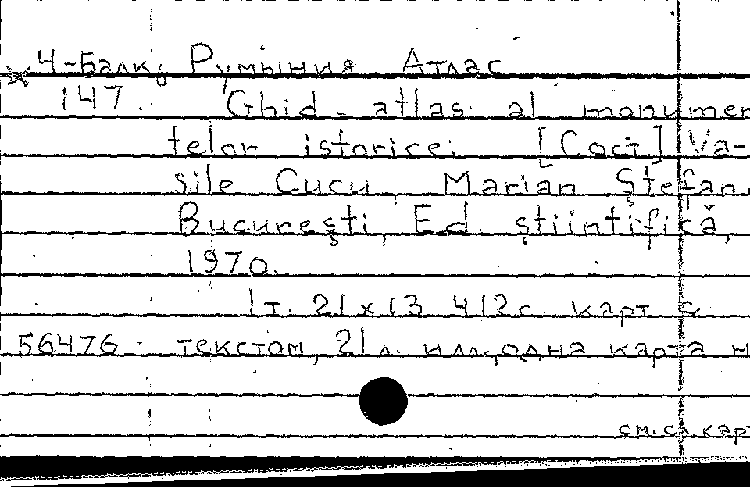 4-Балк. Румыния Атлас
147. Ghid-atlas al monumen
telor istorice. [Сост.] Va-
sile Cucu, Marian Ştefan.
Bucureşti, Ed. ştiintifică,
1970.
1т. 21x13 412с. карт с
56476 текстом, 21л. илл., одна карта н
см.сл.кар